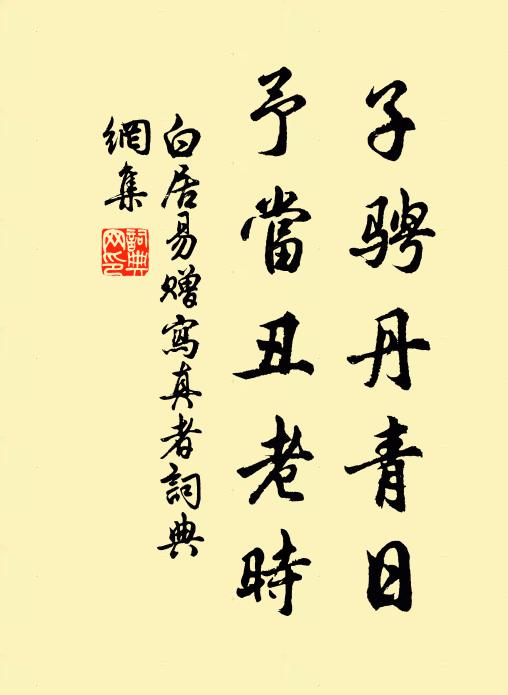 子騁丹青日
予當丑老時
白居易贈寫真者詞典
網集
詞典
网印